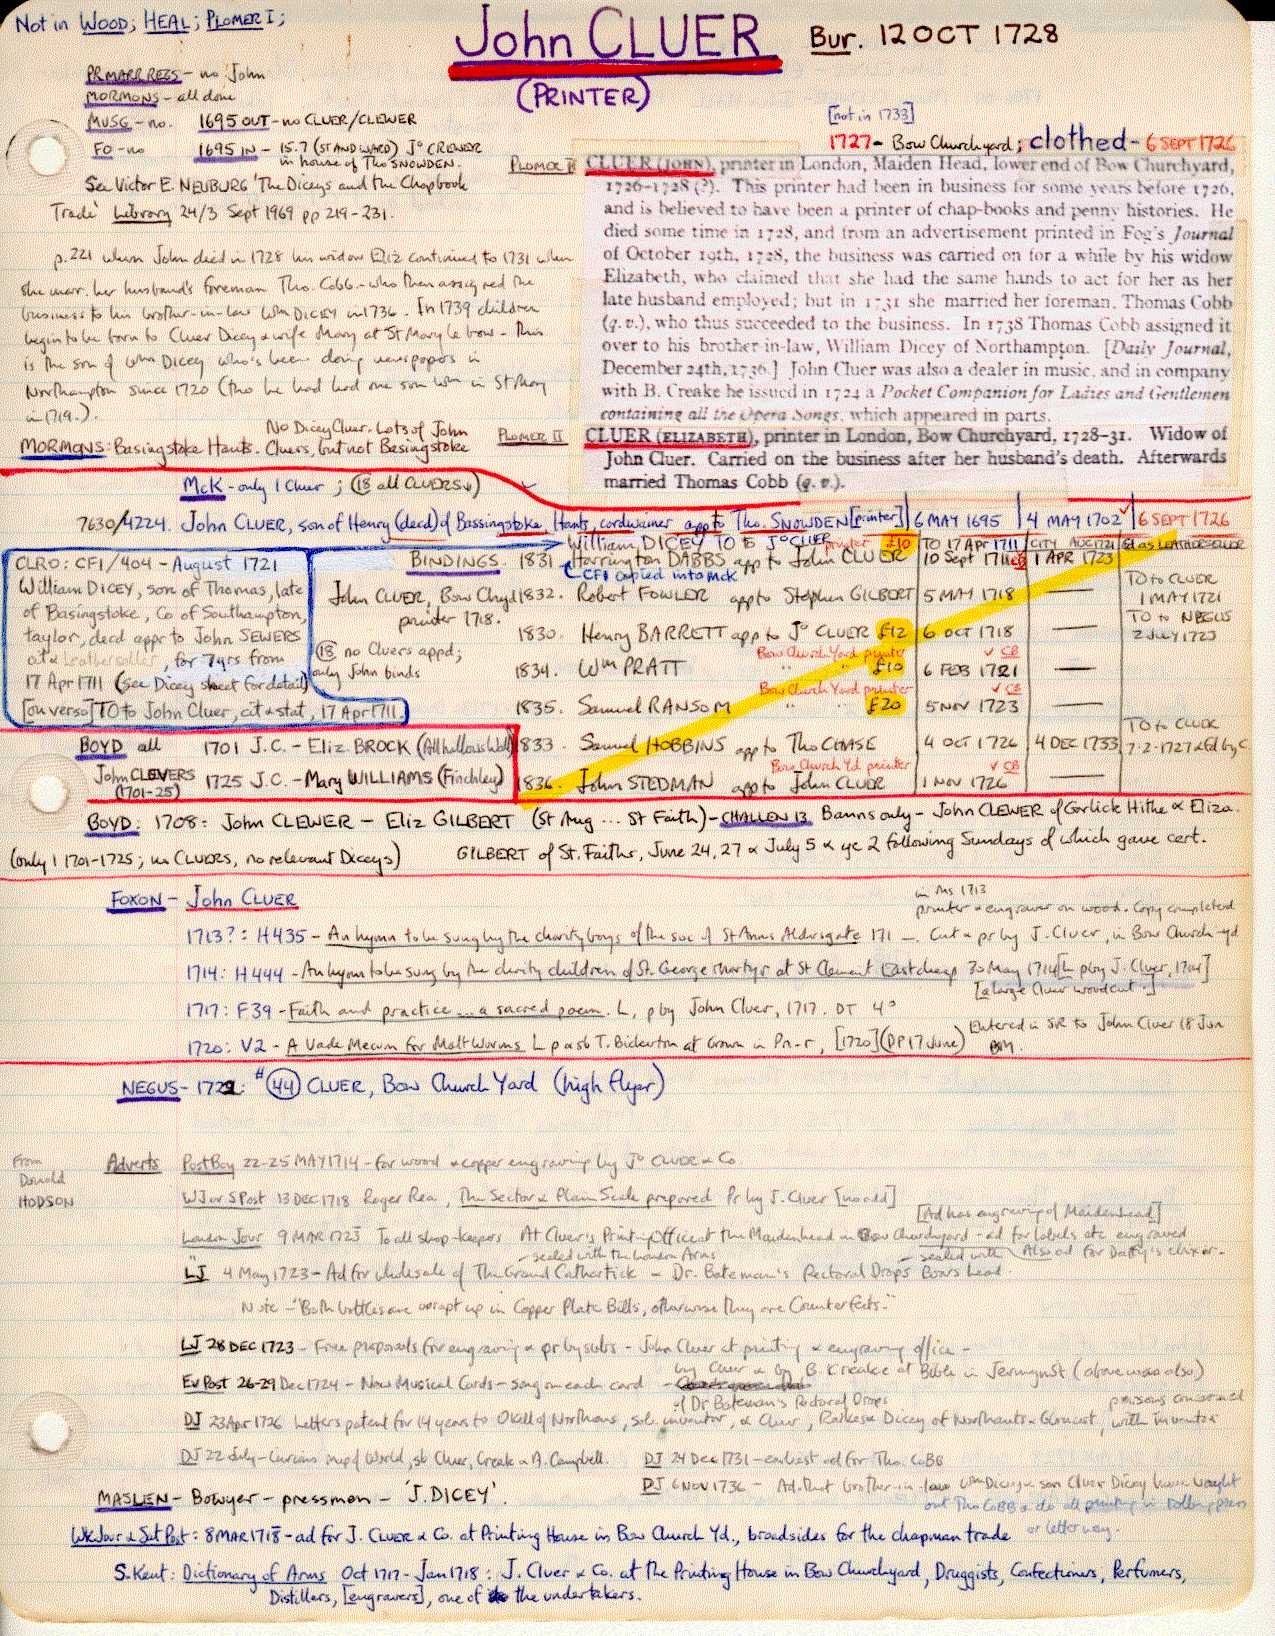 Not in WOOD; HEAL; PLOMER I;
John CLUER Bur. 12 OCT 1728
(PRINTER)
PR MARR REGS - no John
MORMONS - all done
MUSG - no. 1695 OUT - no CLUER/CLEWER
FO - no 1695 IN - 15.7 (ST AND WARD) Jº CREWER
in house of Tho SNOWDEN.
See Victor E. NEUBURG 'The Diceys and the Chapbook
Trade' Library 24/3 Sept 1969 pp 219-231.
p. 221 when John died in 1728 his widow Eliz continued to 1731 when
she marr. her husband's foreman Tho. Cobb - who then assigned the
business to his brother-in-law Wm DICEY in 1736. In 1739 children
begin to be born to Cluer Dicey & wife Mary at St Mary le bone - this
is the son of Wm Dicey who's been doing newspapers in
Northampton since 1720 (tho he had had one son Wm in St Mary
in 1719.).
No Dicey Cluer. Lots of John
MORMONS: Basingstoke Hants. Cluers, but not Basingstoke
[not in 1733]
1727 - Bow Churchyard; clothed - 6 SEPT 1726
PLOMER II
CLUER (JOHN), printer in London, Maiden Head, lower end of Bow Churchyard,
1726-1728 (?). This printer had been in business for some years before 1726,
and is believed to have been a printer of chap-books and penny histories. He
died some time in 1728, and from an advertisement printed in Fog's Journal
of October 19th, 1728, the business was carried on for a while by his widow
Elizabeth, who claimed that she had the same hands to act for her as her
late husband employed; but in 1731 she married her foreman, Thomas Cobb
(q.v.), who thus succeeded to the business. In 1738 Thomas Cobb assigned it
over to his brother-in-law, William Dicey of Northampton. [Daily Journal,
December 24th, 1736.] John Cluer was also a dealer in music, and in company
with B. Creake he issued in 1724 a Pocket Companion for Ladies and Gentlemen
containing all the Opera Songs, which appeared in parts.
PLOMER II
CLUER (ELIZABETH), printer in London, Bow Churchyard, 1728-31. Widow of
John Cluer. Carried on the business after her husband's death. Afterwards
married Thomas Cobb (q.v.).
McK - only 1 Cluer; (18 all CLUERS↓)
7630/4224. John CLUER, son of Henry (decd) of Bassingstoke, Hants, cordwainer app to Tho. SNOWDEN [printer] 6 MAY 1695 4 MAY 1702 6 SEPT 1726
William DICEY TO to Jº CLUER printer £10 TO 17 Apr 1711 CITY AUG 1721 Ed as LEATHERSELLER
CLRO: CF1/404 - August 1721
William DICEY, son of Thomas, late
of Basingstoke, Co of Southampton,
taylor, decd appr to John SEWERS
cit & Leatherseller, for 7 yrs from
17 Apr 1711 (see Dicey sheet for detail)
[on verso] TO to John Cluer, cit & stat, 17 Apr 1711.
BINDINGS. 1831. Harrington DABBS app to John CLUER 10 Sept 1711 CB 1 APR 1723
CF1 copied into McK
John CLUER, Bow Chyd
printer 1718.
18 no Cluers appd;
only John binds
1832. Robert FOWLER app to Stephen GILBERT 5 MAY 1718 —— TO to CLUER
1 MAY 1721
1830. Henry BARRETT app to Jº CLUER £12 6 OCT 1718 —— TO to NEGUS
2 July 1723
Bow Church Yard printer ✓ CB
1834. Wm PRATT " " £10 6 FEB 1721 ——
Bow Church Yard printer ✓ CB
1835. Samuel RANSOM " " £20 5 NOV 1723 ——
BOYD all 1701 J.C. - Eliz. BROCK (All hallows Wall)
John CLEVERS 1725 J.C. - Mary WILLIAMS (Finchley)
(1701-25)
1833. Samuel HOBBINS app to Tho CHASE 4 OCT 1726 4 DEC 1733 TO to CLUER
7.2.1727 & Ed by C
Bow Church Yd printer ✓ CB
1836. John STEDMAN app to John CLUER 1 NOV 1726 ——
BOYD: 1708: John CLEWER - Eliz GILBERT (St Aug ... St Faith) - CHALLEN 13. Banns only - John CLEWER of Garlick Hithe & Eliza.
(only 1 1701-1725; no CLUERS, no relevant Diceys) GILBERT of St. Faiths, June 24, 27 & July 5 & ye 2 following Sundays of which gave cert.
FOXON - John CLUER
in Ms 1713
printer & engraver on wood. Copy completed
1713?: H435 - An hymn to be sung by the charity boys of the soc of St Anns Aldersgate 171 -. Cut & pr by J. Cluer, in Bow Church-yd
1714: H444 - An hymn to be sung by the charity children of St. George martyr at St Clement Eastcheap 30 May 1714 [L p by J. Cluer, 1714]
[a large Cluer woodcut.]
1717: F39 - Faith and practice ... a sacred poem. L, p by John Cluer, 1717. DT 4º
1720: V2 - A Vade Mecum for Malt Worms L p & sb T. Bickerton at Crown in Pn-r, [1720] (DP 17 June) Entered in SR to John Cluer 18 Jun
BM.
NEGUS - 1722: # 44 CLUER, Bow Church Yard (high flyer)
From
Donald
HODSON
Adverts Post Boy 22-25 MAY 1714 - for wood & copper engraving by Jº CLUER & Co.
WJ or S Post 13 DEC 1718 Roger Rea, The Sector & Plain Scale prepared Pr by J. Cluer [no add]
[Ad has engraving of Maidenhead]
London Jour 9 MAR 1723 To all shop-keepers At Cluer's Printing Office at the Maidenhead in Bow Churchyard - ad for labels etc engraved
- sealed with the London Arms - sealed with Also ad for Daffy's elixir.
LJ 4 May 1723 - Ad for wholesale of The Grand Cathartick - Dr. Bateman's Pectoral Drops Boars head.
Note - "Both bottles are wrapt up in Copper Plate Bills, otherwise they are Counterfeits."
LJ 28 DEC 1723 - Free proposals for engraving & pr by subs - John Cluer at printing & engraving office -
by Cluer & by B. Kreake at Bible in Jermyn St (above was also)
Ev Post 26-29 Dec 1724 - New Musical Cards - song on each card
of Dr Bateman's Pectoral Drops persons concerned
DJ 23 Apr 1726 Letters patent for 14 years to Okell of Northans, sole inventor, & Cluer, Raikes & Dicey of Northants & Gloucist, with inventor
DJ 22 July - Curious map of World, sb Cluer, Creak & A. Campbell. DJ 24 Dec 1731 - earliest ad for Tho. CoBB
DJ 6 NOV 1736 - Ad. that brother-in-law Wm Dicey & son Cluer Dicey have bought
out Tho CoBB & do all printing in rolling press
or letter way.
MASLEN - Bowyer - pressman - 'J. DICEY'.
Wk Jour & Sat Post: 8 MAR 1718 - ad for J. CLUER & Co. at Printing House in Bow Church Yd., broadsides for the chapman trade
S. Kent: Dictionary of Arms Oct 1717 - Jan 1718: J. Cluer & Co. at the Printing House in Bow Churchyard, Druggists, Confectioners, Perfumers,
Distillers, [engravers], one of the undertakers.